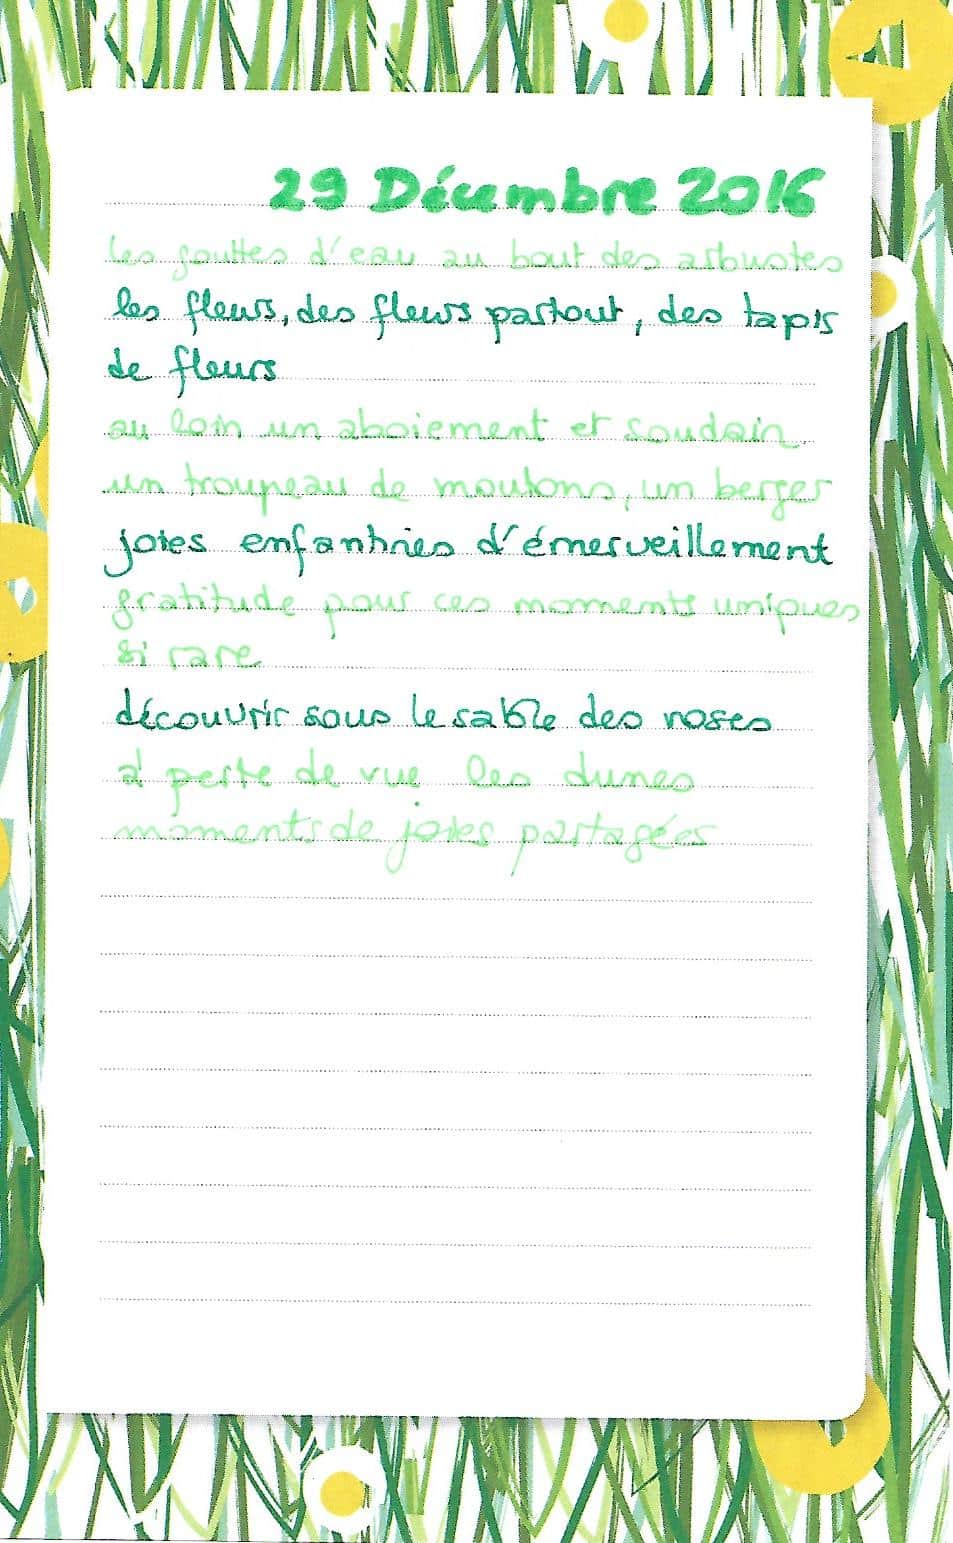 29 Décembre 2016
les gouttes d'eau au bout des arbustes
les fleurs, des fleurs partout, des tapis
de fleurs
au loin un aboiement et soudain
un troupeau de moutons, un berger
joies enfantines d'émerveillement
gratitude pour ces moments uniques
si rare
découvrir sous le sable des roses
à perte de vue les dunes
moments de joies partagées